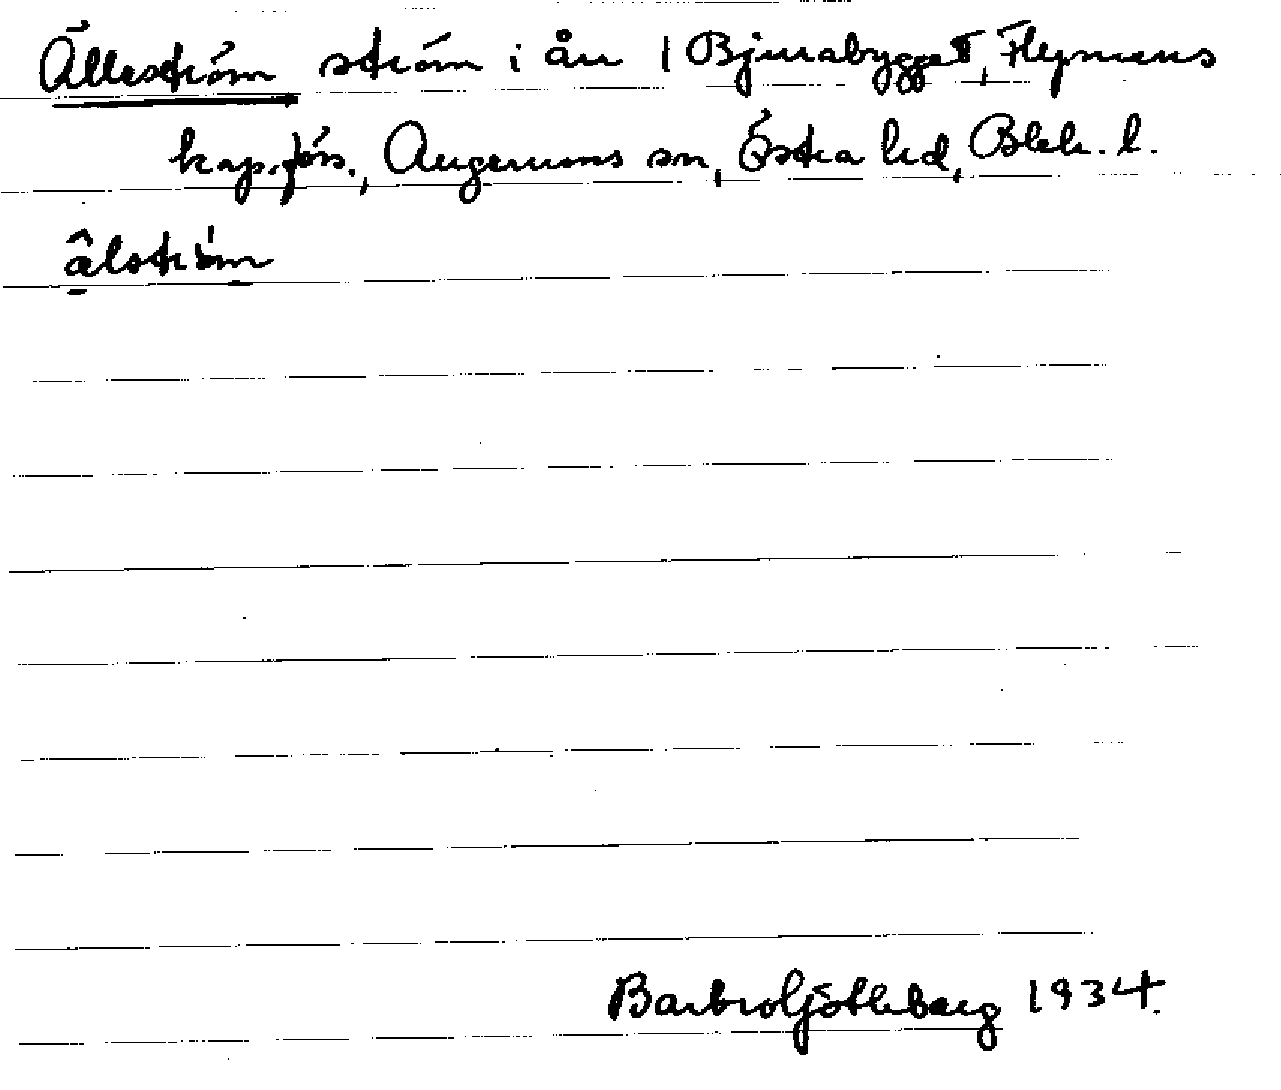 Älleström ström i ån / Bjurabygget, Flymens
kap.förs., Augerums sn, Östra hd, Blek. l.
âlström
Barbro Götleborg 1934.